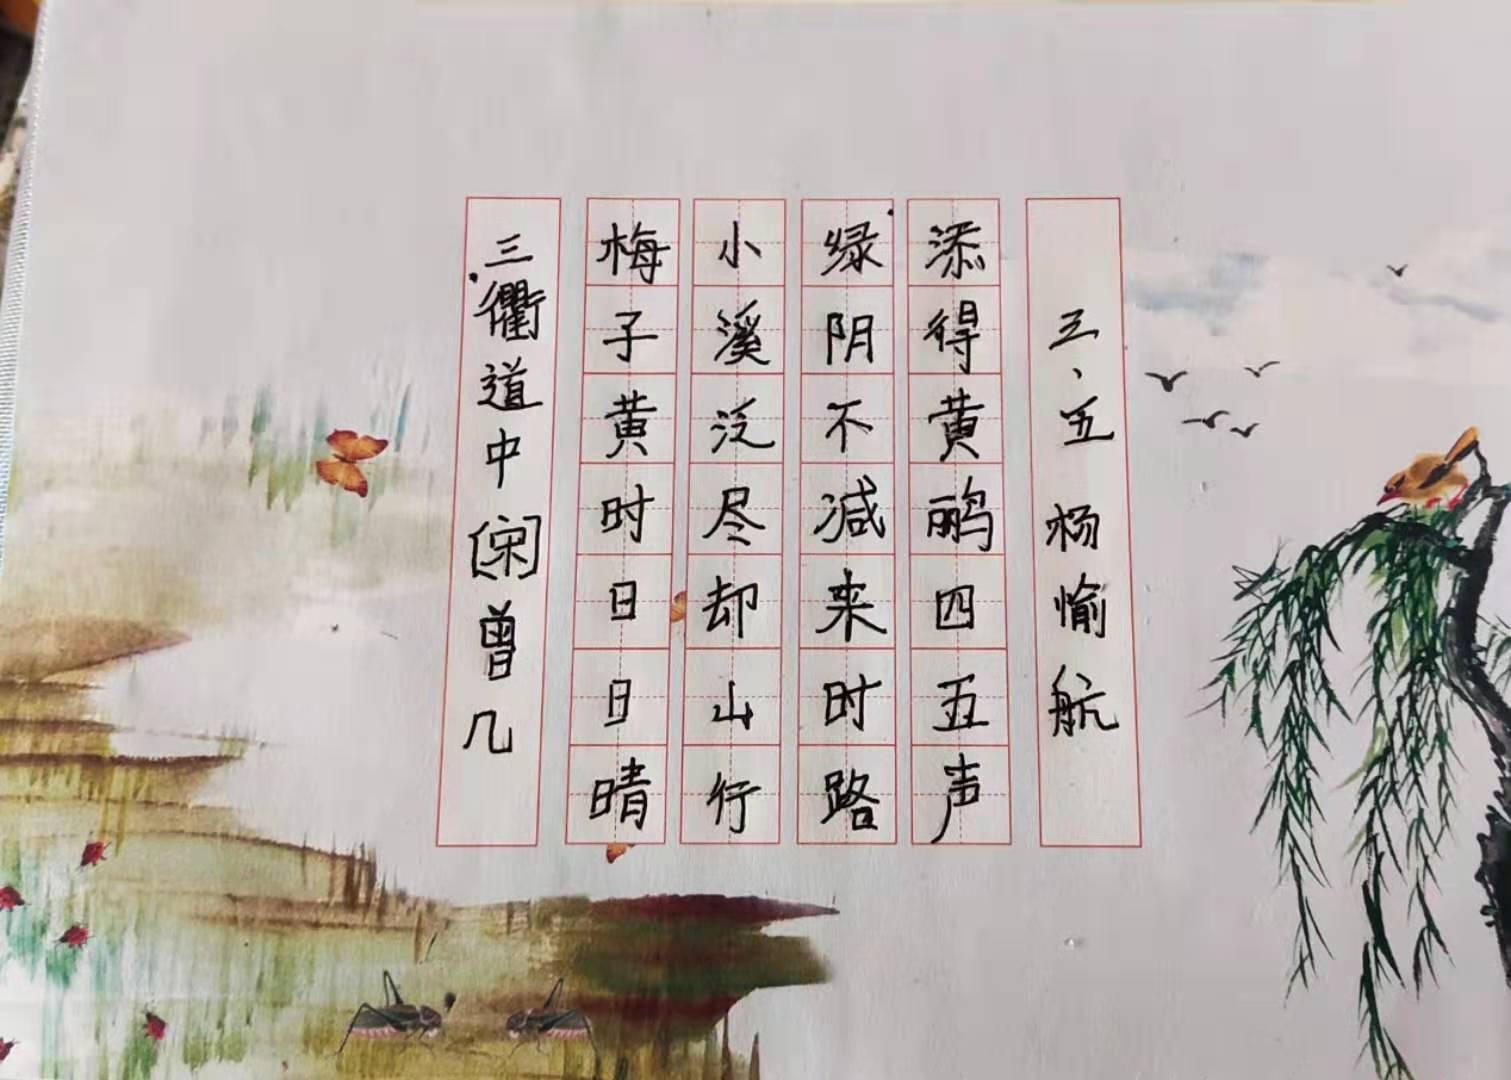 三衢道中〔宋〕曾几
梅子黄时日日晴
小溪泛尽却山行
绿阴不减来时路
添得黄鹂四五声
三、五 杨愉航